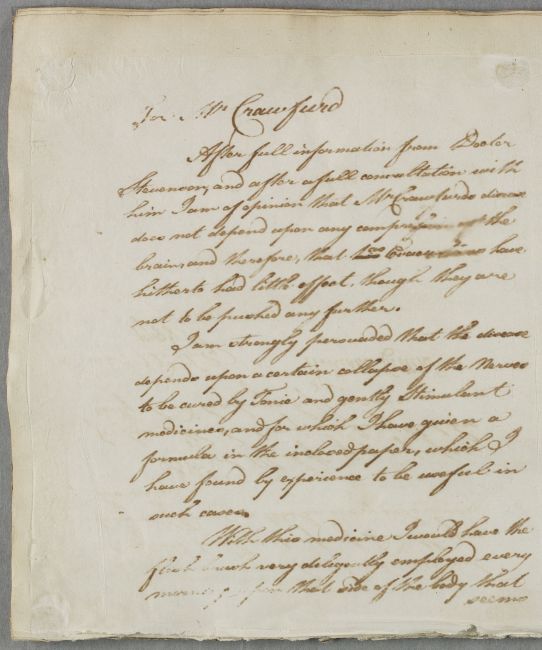 For Mr Crawfurd
After full information from Doctor
Stevenson, and after a full consultation with
him I am of opinion that Mr Crawfurds disease
does not depend upon any compression of the
brain, and therefore, that have
hitherto had little effect, though they are
not to be pushed any further.
I am strongly persuaded that the disease
depends upon a certain collapse of the Nerves
to be cured by Tonic and gently Stimulant
medicines, and for which I have given a
formula in the inclosed paper, which I
have found by experience to be useful in
such cases.
With this medicine I would have the
flesh brush very diligently employed every
morning upon that side of the body that
seems